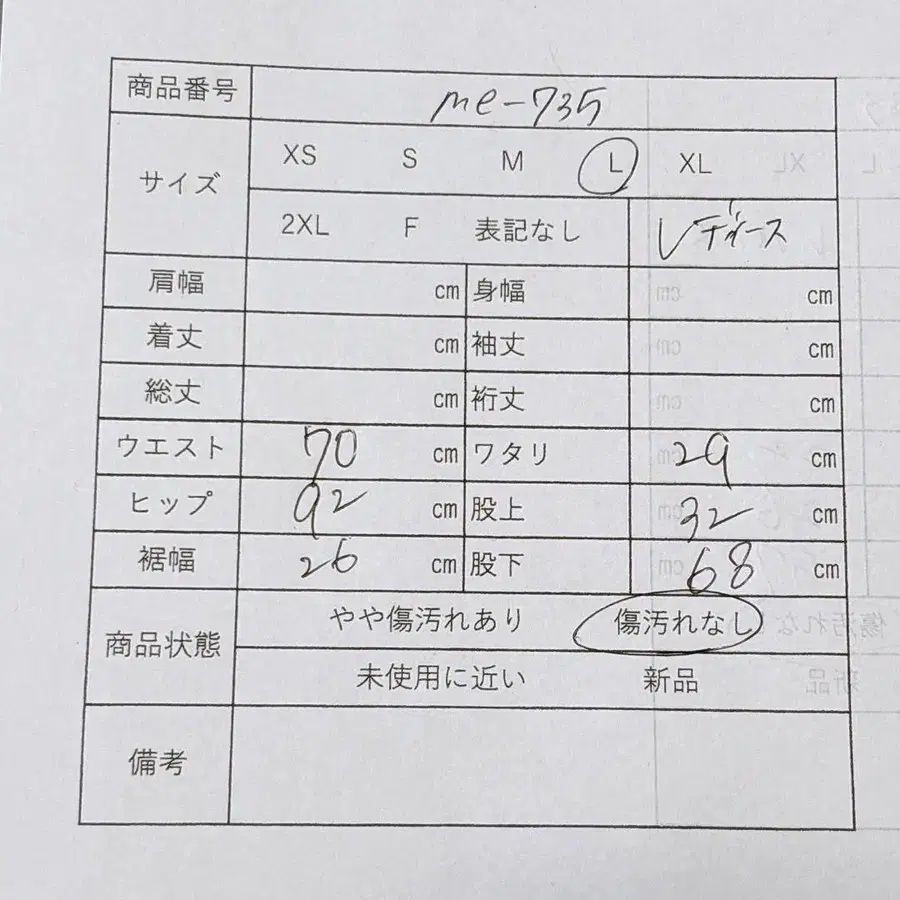 商品番号 me-735
サイズ XS S M L XL
2XL F 表記なし レディース
肩幅 cm 身幅 cm
着丈 cm 袖丈 cm
総丈 cm 裄丈 cm
ウエスト 70 cm ワタリ 29 cm
ヒップ 92 cm 股上 32 cm
裾幅 26 cm 股下 68 cm
商品状態 やや傷汚れあり 傷汚れなし
未使用に近い 新品
備考